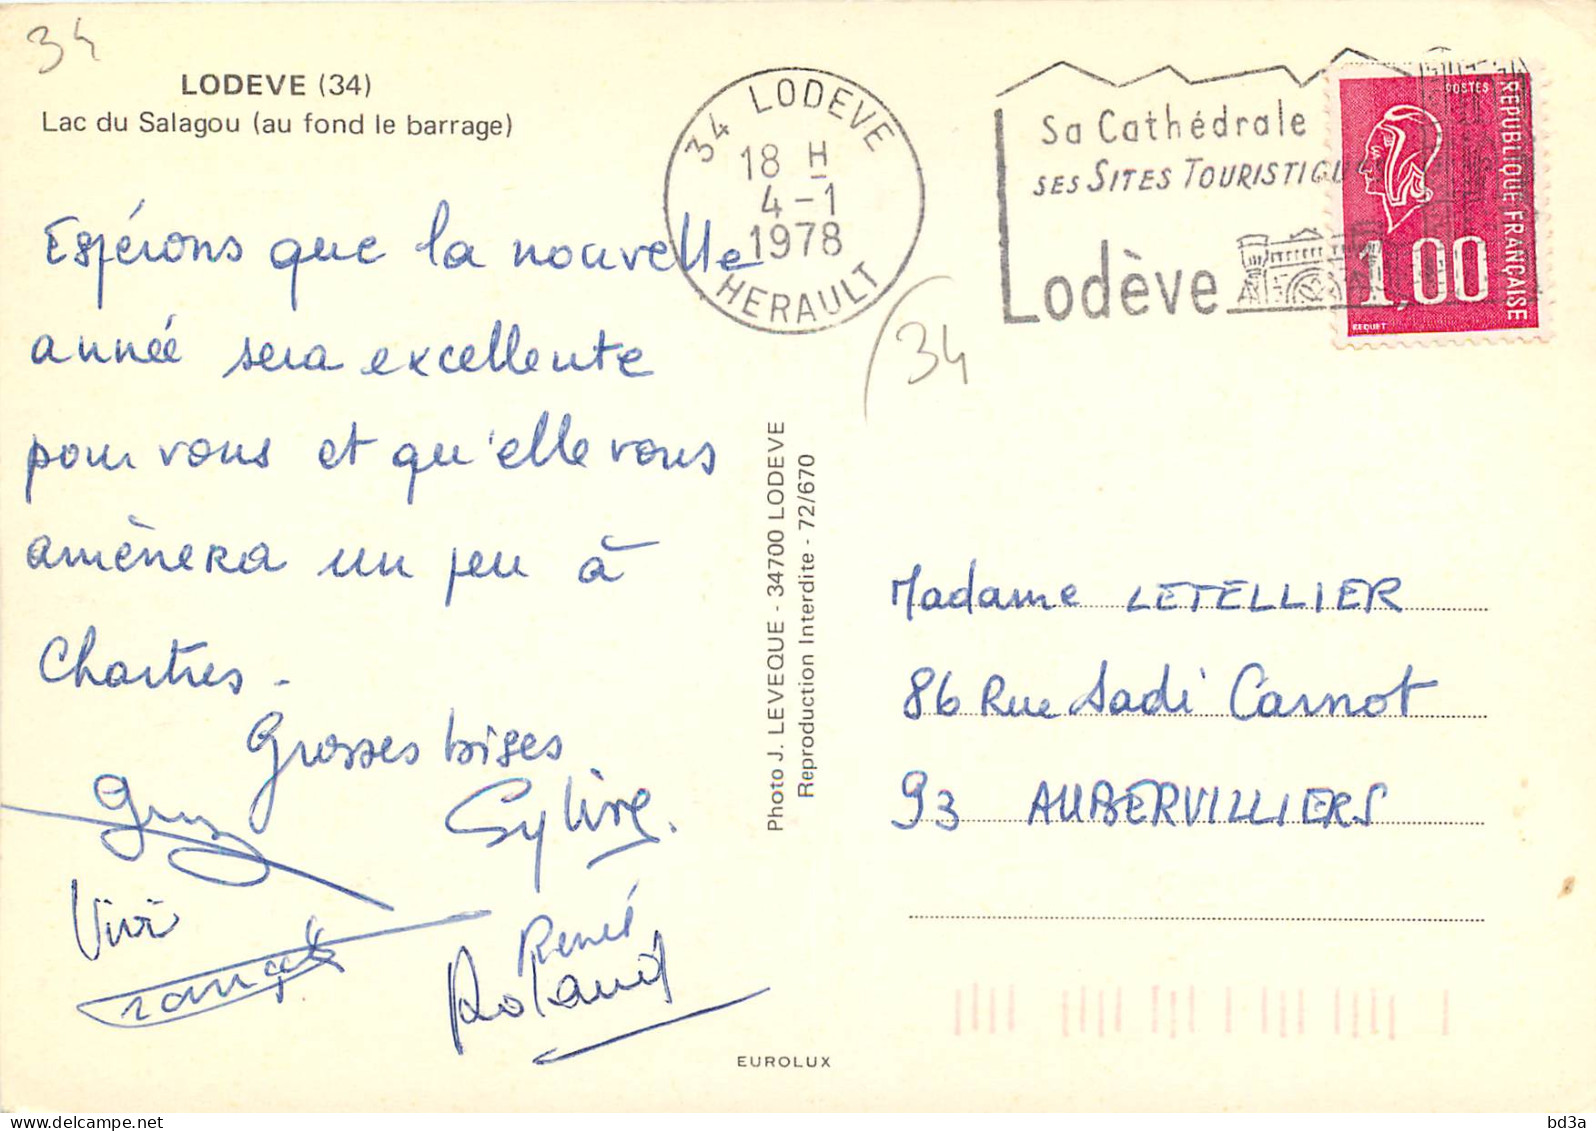 34
LODEVE (34)
Lac du Salagou (au fond le barrage)
Espérons que la nouvelle
année sera excellente
pour vous et qu'elle vous
amènera un peu à
Chartres -
Grosses bises
Sylvie.
Vivi
René
Roland
34 LODEVE
18 H
4-1
1978
HERAULT
Sa Cathédrale
SES SITES TOURISTIQU
Lodève
POSTES
REPUBLIQUE FRANÇAISE
1,00
BEQUET
34
Photo J. LEVEQUE - 34700 LODEVE
Reproduction Interdite - 72/670
Madame LETELLIER
86 Rue Sadi Carnot
93 AUBERVILLIERS
EUROLUX
bd3a